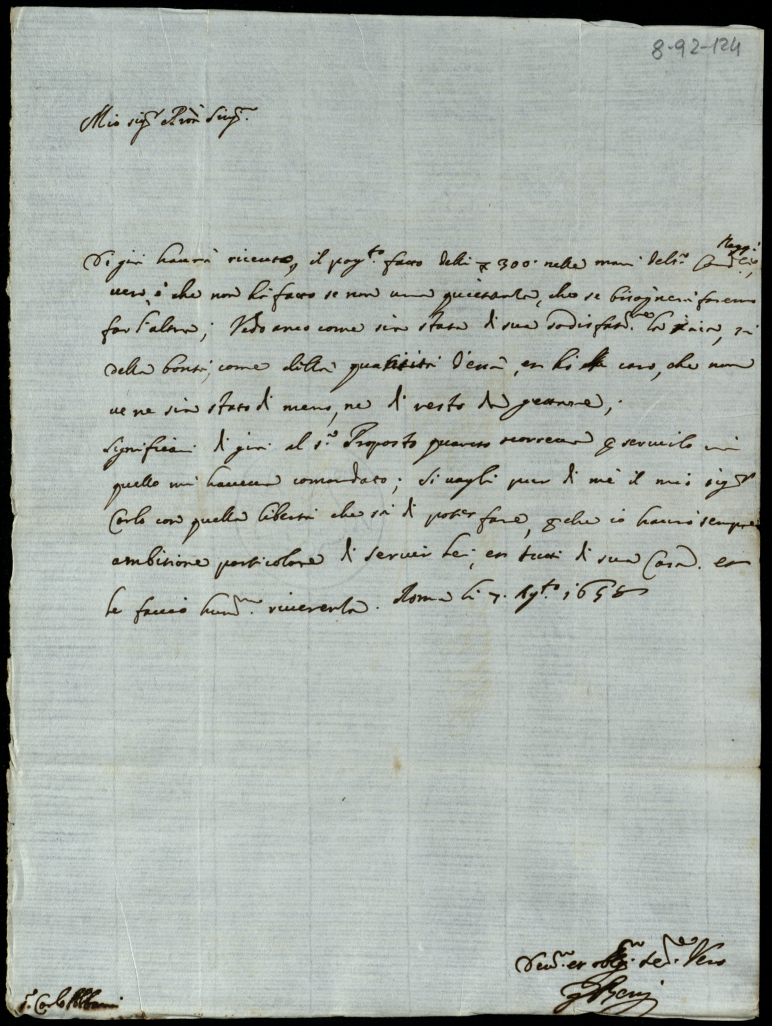 8-92-124
Mio sig.r e Pron Sing.r
Di già haverà ricevuto, il pag.to fatto delli 300. nelle mani del s.r
vero è che non hà fatto se non una quietanza, che se bisognerà faremo
far l'altra; Vedo anco come sia stata di sua sodisfat.ne la
della bontà, come della quantità d'essa, et hò caro, che non
ve ne sia stato di meno, ne di resto da
Significai di già al s.r Proposto quanto p servirlo in
quello mi haveva comandato; Si vagli pur di mè il mio sig.r
Carlo con quella libertà che sà di poter fare, p che io haverò sempre
ambitione particolare di servir lei, et tutti di sua Casa. et
le faccio hum.a riverenza. Roma li 7. Ag.to 1658
Dev.mo et obblig.mo se.re Vero
s.r Carlo Albani